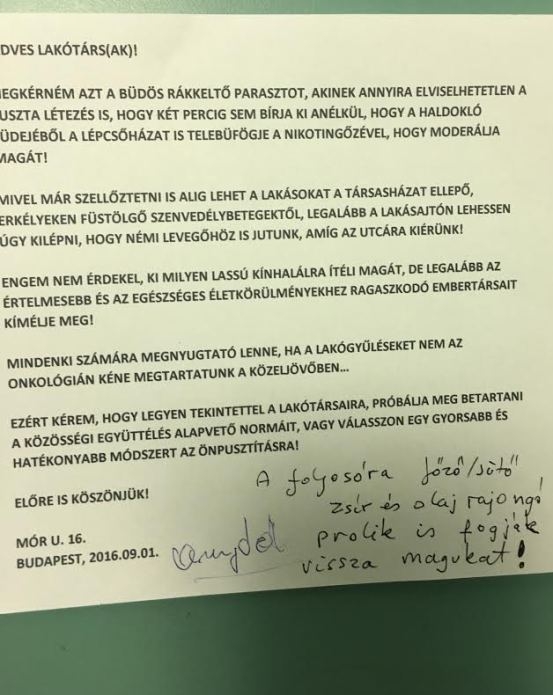 DVES LAKÓTÁRS(AK)!
EGKÉRNÉM AZT A BÜDÖS RÁKKELTŐ PARASZTOT, AKINEK ANNYIRA ELVISELHETETLEN A
USZTA LÉTEZÉS IS, HOGY KÉT PERCIG SEM BÍRJA KI ANÉLKÜL, HOGY A HALDOKLÓ
ÜDEJÉBŐL A LÉPCSŐHÁZAT IS TELEBÜFÖGJE A NIKOTINGŐZÉVEL, HOGY MODERÁLJA
MAGÁT!
MIVEL MÁR SZELLŐZTETNI IS ALIG LEHET A LAKÁSOKAT A TÁRSASHÁZAT ELLEPŐ,
ERKÉLYEKEN FÜSTÖLGŐ SZENVEDÉLYBETEGEKTŐL, LEGALÁBB A LAKÁSAJTÓN LEHESSEN
ÚGY KILÉPNI, HOGY NÉMI LEVEGŐHÖZ IS JUTUNK, AMÍG AZ UTCÁRA KIÉRÜNK!
ENGEM NEM ÉRDEKEL, KI MILYEN LASSÚ KÍNHALÁLRA ÍTÉLI MAGÁT, DE LEGALÁBB AZ
ÉRTELMESEBB ÉS AZ EGÉSZSÉGES ÉLETKÖRÜLMÉNYEKHEZ RAGASZKODÓ EMBERTÁRSAIT
KÍMÉLJE MEG!
MINDENKI SZÁMÁRA MEGNYUGTATÓ LENNE, HA A LAKÓGYŰLÉSEKET NEM AZ
ONKOLÓGIÁN KÉNE MEGTARTATUNK A KÖZELJÖVŐBEN...
EZÉRT KÉREM, HOGY LEGYEN TEKINTETTEL A LAKÓTÁRSAIRA, PRÓBÁLJA MEG BETARTANI
A KÖZÖSSÉGI EGYÜTTÉLÉS ALAPVETŐ NORMÁIT, VAGY VÁLASSZON EGY GYORSABB ÉS
HATÉKONYABB MÓDSZERT AZ ÖNPUSZTÍTÁSRA!
ELŐRE IS KÖSZÖNJÜK!
MÓR U. 16.
BUDAPEST, 2016.09.01.
A folyosóra főző/sütő
zsír és olaj rajongó
prolik is fogják
vissza magukat!